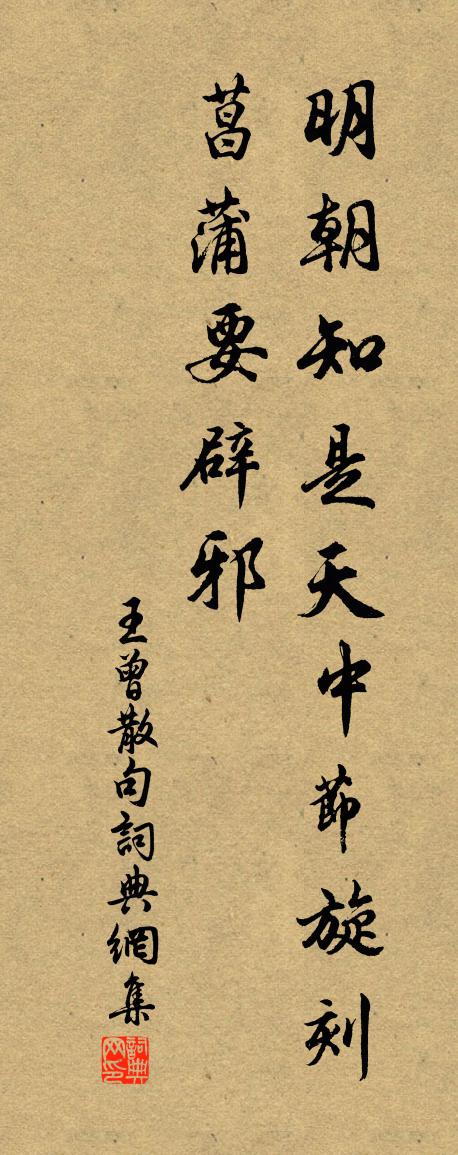 明朝知是天中節旋刻
菖蒲要辟邪
王曾散句詞典網集
詞典网印